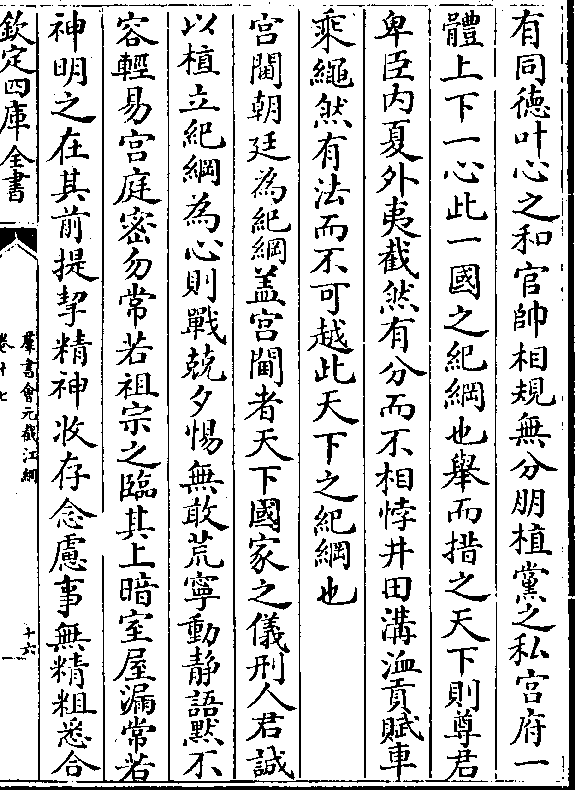 有同德叶心之和官帥相規無分朋植黨之私宫府一
體上下一心此一國之紀綱也舉而措之天下則尊君
卑臣内夏外夷截然有分而不相悖井田溝洫貢賦車
乘繩然有法而不可越此天下之紀綱也
宫閫朝廷為紀綱盖宫閫者天下國家之儀刑人君誠
以植立紀綱為心則戰兢夕惕無敢荒寧動静語黙不
容輕易宫庭密勿常若祖宗之臨其上暗室屋漏常若
神明之在其前提挈精神收存念慮事無精粗悉合
欽定四庫全書
羣書會元截江網
卷十七
十六